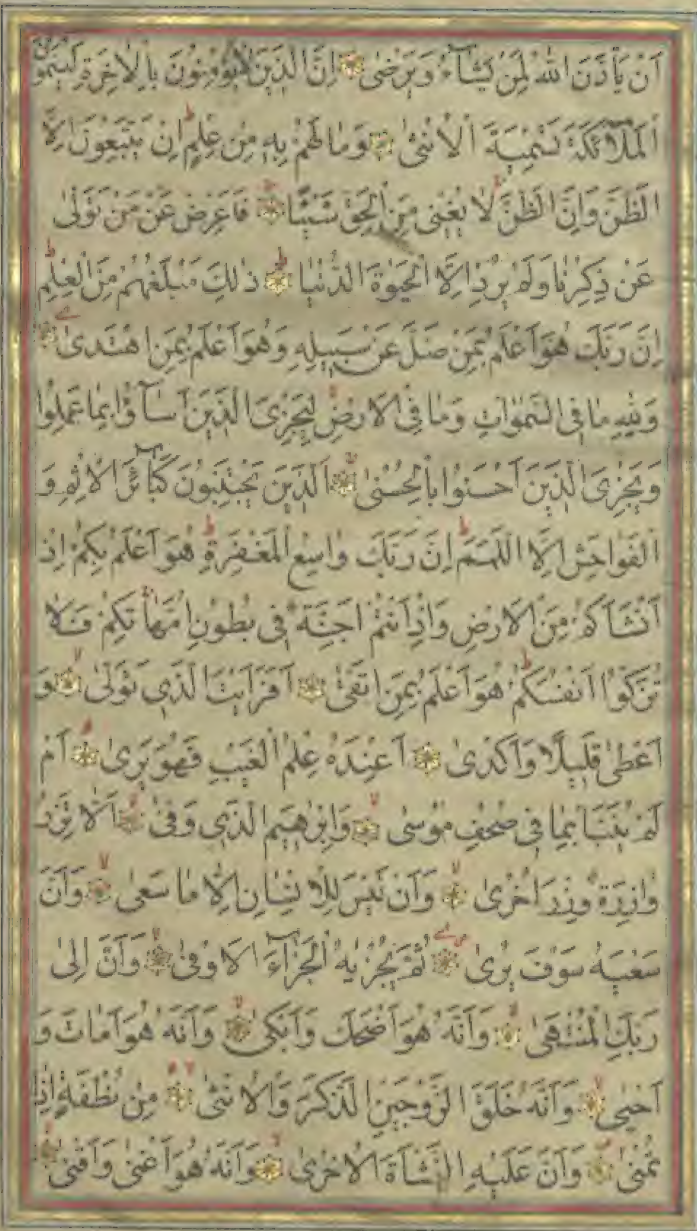 اَنْ يَأْذَنَ اللّٰهُ لِمَنْ يَشَآءُ وَيَرْضٰى اِنَّ الَّذِينَ لَا يُؤْمِنُونَ بِالْاٰخِرَةِ لَيُسَمُّونَ
الْمَلٰٓئِكَةَ تَسْمِيَةَ الْاُنْثٰى وَمَا لَهُمْ بِهِ مِنْ عِلْمٍ اِنْ يَتَّبِعُونَ اِلَّا
الظَّنَّ وَاِنَّ الظَّنَّ لَا يُغْنِى مِنَ الْحَقِّ شَيْئًا فَاَعْرِضْ عَنْ مَنْ تَوَلّٰى
عَنْ ذِكْرِنَا وَلَمْ يُرِدْ اِلَّا الْحَيٰوةَ الدُّنْيَا ذٰلِكَ مَبْلَغُهُمْ مِنَ الْعِلْمِ
اِنَّ رَبَّكَ هُوَ اَعْلَمُ بِمَنْ ضَلَّ عَنْ سَبِيلِهِ وَهُوَ اَعْلَمُ بِمَنِ اهْتَدٰى
وَلِلّٰهِ مَا فِى السَّمٰوَاتِ وَمَا فِى الْاَرْضِ لِيَجْزِىَ الَّذِينَ اَسَآؤُا بِمَا عَمِلُوا
وَيَجْزِىَ الَّذِينَ اَحْسَنُوا بِالْحُسْنٰى اَلَّذِينَ يَجْتَنِبُونَ كَبَآئِرَ الْاِثْمِ وَ
الْفَوَاحِشَ اِلَّا اللَّمَمَ اِنَّ رَبَّكَ وَاسِعُ الْمَغْفِرَةِ هُوَ اَعْلَمُ بِكُمْ اِذْ
اَنْشَاَكُمْ مِنَ الْاَرْضِ وَاِذْ اَنْتُمْ اَجِنَّةٌ فِى بُطُونِ اُمَّهَاتِكُمْ فَلَا
تُزَكُّوا اَنْفُسَكُمْ هُوَ اَعْلَمُ بِمَنِ اتَّقٰى اَفَرَاَيْتَ الَّذِى تَوَلّٰى وَ
اَعْطٰى قَلِيلًا وَاَكْدٰى اَعِنْدَهُ عِلْمُ الْغَيْبِ فَهُوَ يَرٰى اَمْ
لَمْ يُنَبَّاْ بِمَا فِى صُحُفِ مُوسٰى وَاِبْرٰهِيمَ الَّذِى وَفّٰى اَلَّا تَزِرُ
وَازِرَةٌ وِزْرَ اُخْرٰى وَاَنْ لَيْسَ لِلْاِنْسَانِ اِلَّا مَا سَعٰى وَاَنَّ
سَعْيَهُ سَوْفَ يُرٰى ثُمَّ يُجْزٰيهُ الْجَزَآءَ الْاَوْفٰى وَاَنَّ اِلٰى
رَبِّكَ الْمُنْتَهٰى وَاَنَّهُ هُوَ اَضْحَكَ وَاَبْكٰى وَاَنَّهُ هُوَ اَمَاتَ وَ
اَحْيٰى وَاَنَّهُ خَلَقَ الزَّوْجَيْنِ الذَّكَرَ وَالْاُنْثٰى مِنْ نُطْفَةٍ اِذَا
تُمْنٰى وَاَنَّ عَلَيْهِ النَّشْاَةَ الْاُخْرٰى وَاَنَّهُ هُوَ اَغْنٰى وَاَقْنٰى